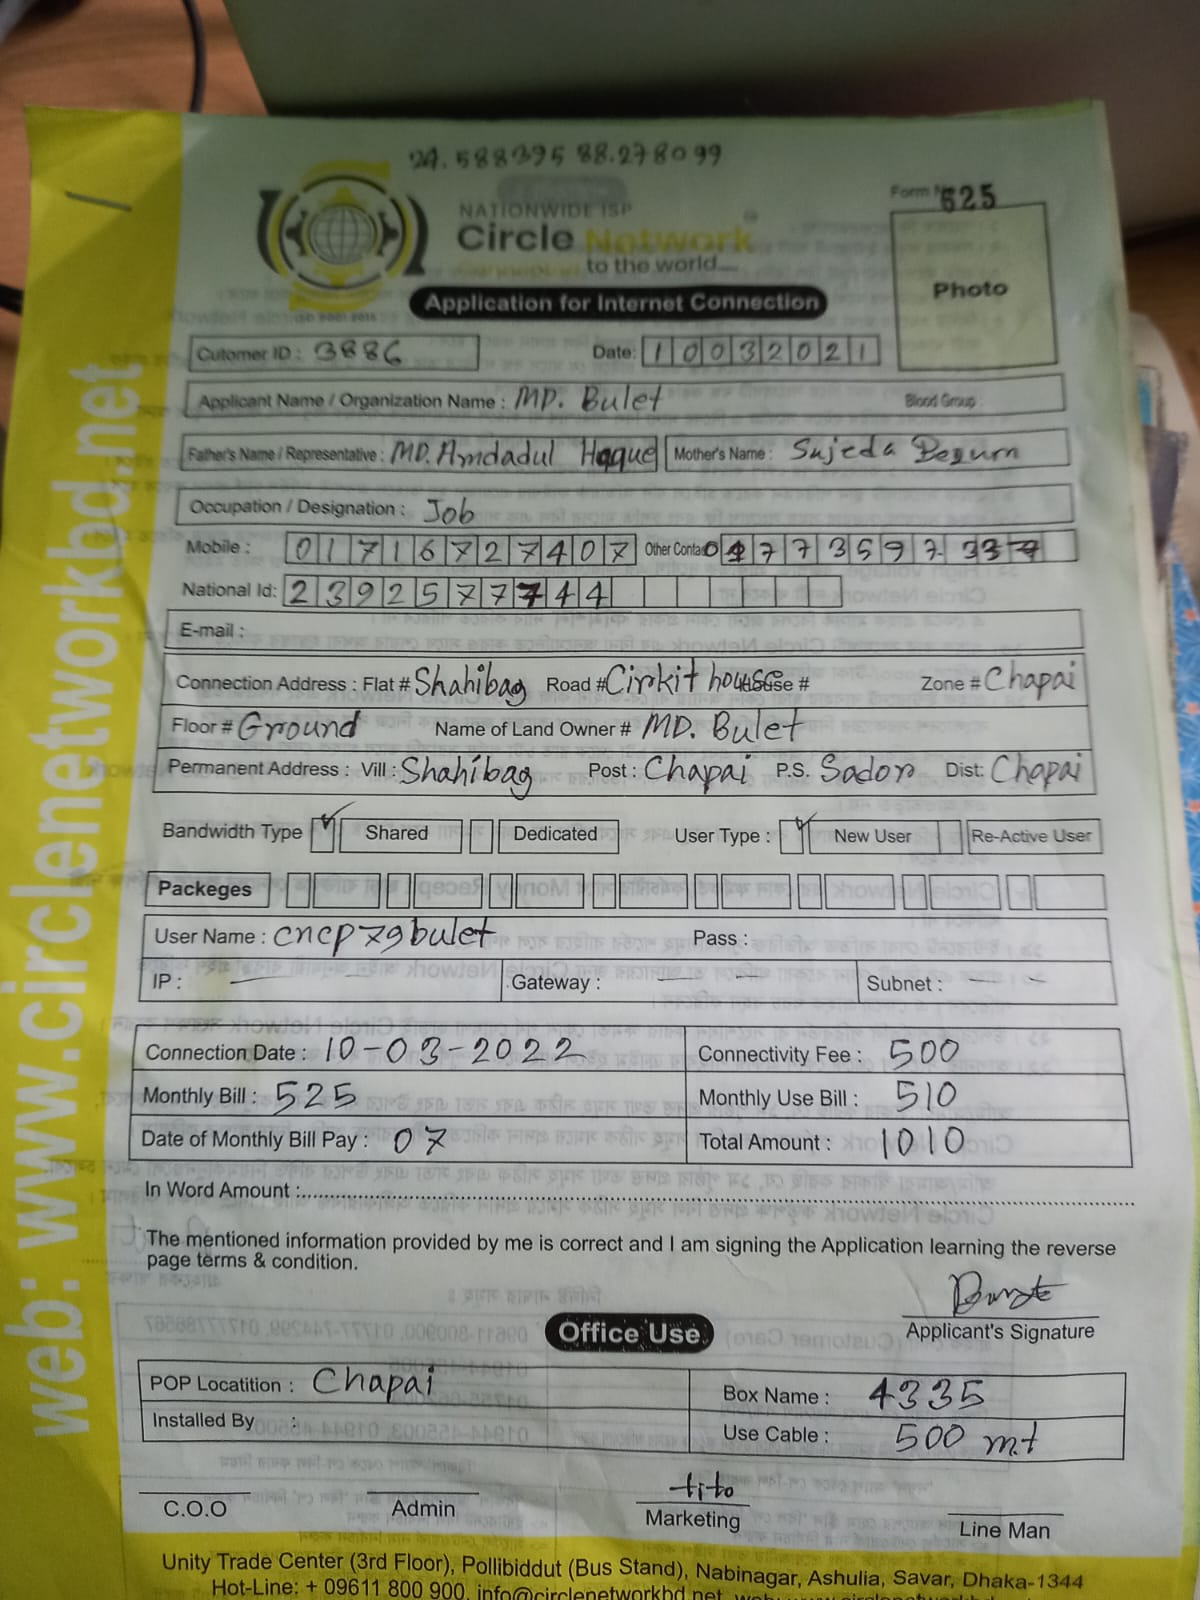 24.588395 88.278099
Form No 625
NATIONWIDE ISP
Circle Network
to the world
Photo
Application for Internet Connection
Cutomer ID : 3886 Date: 10032021
Applicant Name / Organization Name : MD. Bulet Blood Group :
Father's Name / Representative : MD. Amdadul Haque Mother's Name : Sujeda Begum
Occupation / Designation : Job
Mobile : 01716727407 Other Contact
National Id: 2392577744
E-mail :
Connection Address : Flat # Shahibag Road # Cirkit house House # Zone # Chapai
Floor # Ground Name of Land Owner # MD. Bulet
Permanent Address : Vill : Shahibag Post : Chapai P.S. Sador Dist: Chapai
Bandwidth Type Shared Dedicated User Type : New User Re-Active User
Packeges
User Name : cncp79bulet Pass :
IP : — Gateway : — — Subnet : — —
Connection Date : 10-03-2022 Connectivity Fee : 500
Monthly Bill : 525 Monthly Use Bill : 510
Date of Monthly Bill Pay : 07 Total Amount : 1010
In Word Amount :
The mentioned information provided by me is correct and I am signing the Application learning the reverse
page terms & condition.
Applicant's Signature
Office Use
POP Locatition : Chapai Box Name : 4335
Installed By : Use Cable : 500 mt
tito
C.O.O Admin Marketing Line Man
Unity Trade Center (3rd Floor), Pollibiddut (Bus Stand), Nabinagar, Ashulia, Savar, Dhaka-1344
Hot-Line: + 09611 800 900, info@circlenetworkbd.net
web: www.circlenetworkbd.net